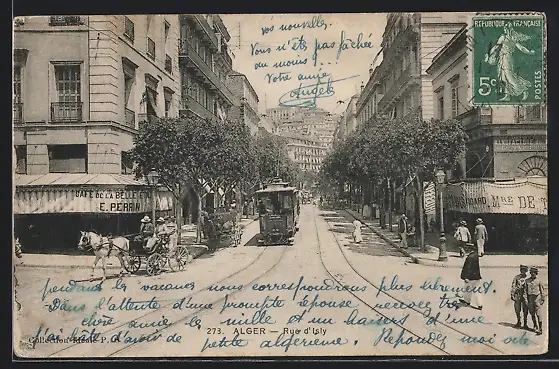 vos nouvelles.
Vous n'êts pas fâchée
au moins ? ...
Votre amie
REPUBLIQUE FRANÇAISE
5c
POSTES
CAFÉ DE LA BOU
E. PERRIN
MR DE T
pendant les vacances nous correspondrons plus librement.
Dans l'attente d'une prompte réponse recevez très
chère amie, mille et un baisers d'une
J'ai hâte d'avoir de petite algérienne. Répondez moi vite
273. ALGER — Rue d'Isly
Collection Idéale P. S.